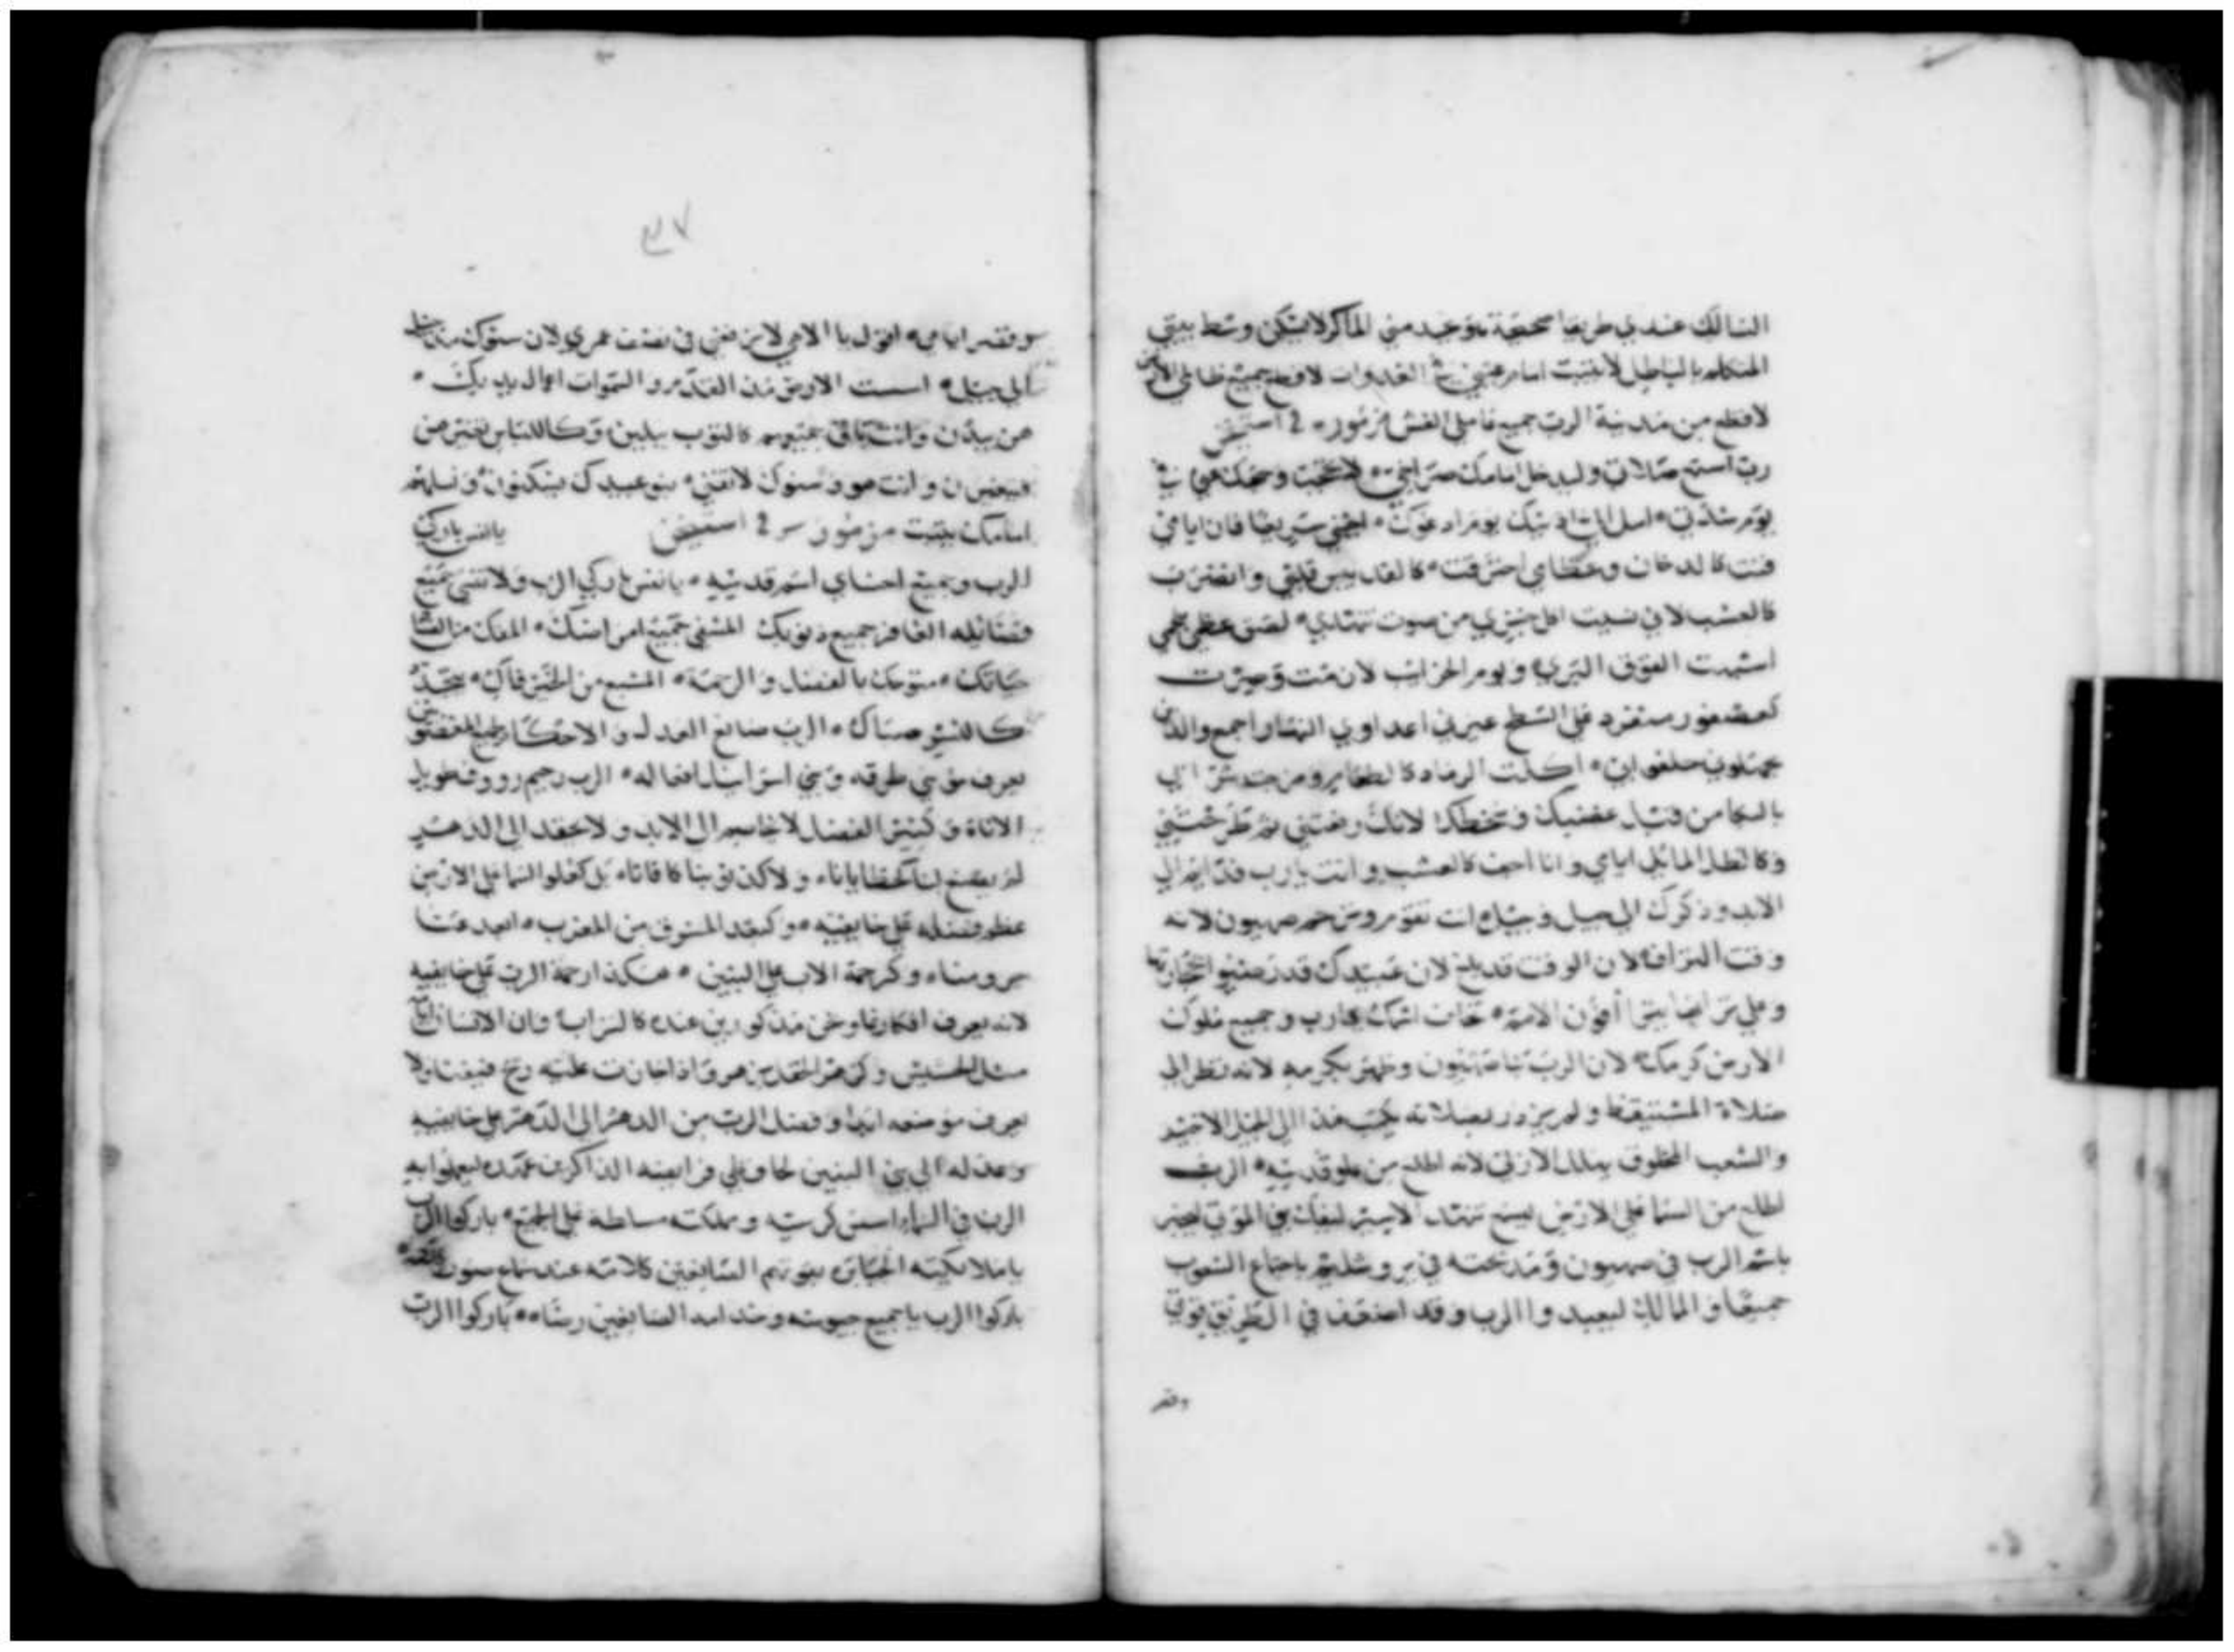 السالك عندي طريقا صحيحة يوجد مني الماكر لا يسكن وسط بيتي
المتكلم بالباطل لا يثبت امام عيني في الغدوات لاقطع جميع ظالمي الارض
لاقطع من مدينة الرب جميع فاعلي الغش مزمور
رب استمع صلاتي وليدخل امامك صراخي لا تحجب وجهك عني في
يوم شدتي امل الي اذنيك يوم ادعوك اجبني سريعا فان ايامي
فنت كالدخان وعظامي احترقت كالقد يبس قلبي وانضرب
كالعشب لاني نسيت اكل خبزي من صوت تنهدي لصق عظمي بلحمي
اشبهت القوق البري وبوم الخرائب لان مت وصرت
كعصفور منفرد على السطح عيرني اعداوي النهار اجمع والذين
يجهلون حلفوا بي اكلت الرماد كالطعام ومزجت شرابي
بالبكا من قبل غضبك وسخطك لانك رفعتني ثم طرحتني
وكالظل المائل ايامي وانا اجف كالعشب وانت يا رب قدايم الي
الابد وذكرك الى جيل وجيل انت تقوم وترحم صهيون لانه
وقت التراف لان الوقت قد بلغ لان عبيدك قد رضيوا حجارتها
وعلي ترابها يترافون الامم تخاف اسمك يا رب وجميع ملوك
الارض كرمك لان الرب بنا صهيون وظهر بكرمه لانه نظر الى
صلاة المستيقظ ولم يزدر بصلاته يكتب هذا الى الجيل الاخير
والشعب المخلوق يهلل الازلي لانه اطلع من علو قدسه الرب
اطلع من السما على الارض ليسمع تنهد الاسير ليفك بني الموتى ليخبر
باسم الرب في صهيون ومدحته في يروشليم باجتماع الشعوب
جميعا والممالك ليعبدوا الرب وقد اضعف في الطريق قوتي
وقصر
٣٧
وقصر ايامي اقول يا الاهي لا ترفعني في نصف عمري لان سنوك من جيل
الى جيل اسست الارض منذ القديم والسموات اعمال يديك
هن يبدن وانت باقي جميعهم كالثوب يبلين وكاللباس تغيرهن
فيتغيرن وانت هو وسنوك لا تفني بنو عبيدك يسكنون ونسلهم
امامك يثبت مزمور يا نفس باركي
الرب وجميع احشاي اسم قدسه يا نفس باركي الرب ولا تنسي جميع
فضائله الغافر جميع ذنوبك المشفي جميع امراضك المفك من الفساد
حياتك متوجك بالفضل والرحمة المشبع من الخير فاك يتجدد
كالنسر صباك الرب صانع العدل والاحكام لجميع المغصوبين
يعرف موسي طرقه وبني اسرائيل افعاله الرب رحيم رووف طويل
الاناة وكثير الفضل لا يخاصم الى الابد ولا يحقد الى الدهر
لم يصنع لنا كخطايانا ولا كذنوبنا كافانا بل كعلو السما على الارض
عظم فضله على خايفيه وكبعد المشرق من المغرب ابعد عنا
جرومنا وكرحمة الاب على البنين هكذا رحمة الرب على خايفيه
لانه يعرف افكارنا ونحن مذكورين عنده كالتراب وان الانسان ايامه
مثل الحشيش وكزهر الحقل يزهر واذا جازت عليه ريح فيفنا ولا
يعرف موضعه ايضا وفضل الرب من الدهر الى الدهر على خايفيه
وعدله الى بني البنين لحافظي فرايضه الذاكرين عهده ليعملوا به
الرب في السما اسس كرسيه ومملكته مسلطة على الجميع باركوا الرب
يا ملايكته الجبابرة بقوتهم الصانعين كلامته عند سماع صوت كلامه
باركوا الرب يا جميع جيوشه وخدامه الصانعين رضاه باركوا الرب